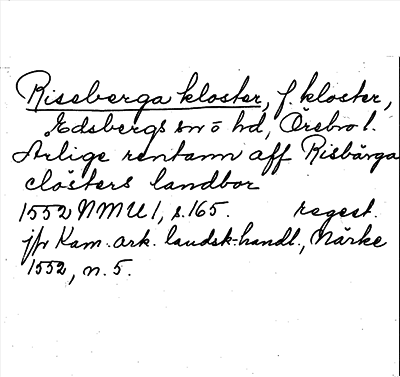 Riseberga kloster, f. kloster,
Edsbergs sn o hd, Örebro l.
Årlige rentann aff Risbärga
clösters landbor
1552 NMU 1, s. 165. regest.
jfr Kam. ark. landsk.handl., Närke
1552, n. 5.